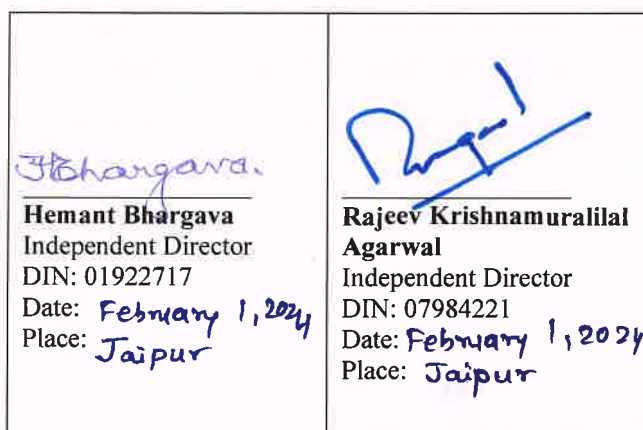 HBhargava.
Hemant Bhargava
Independent Director
DIN: 01922717
Date: February 1, 2024
Place: Jaipur
Rajeev Krishnamuralilal
Agarwal
Independent Director
DIN: 07984221
Date: February 1, 2024
Place: Jaipur